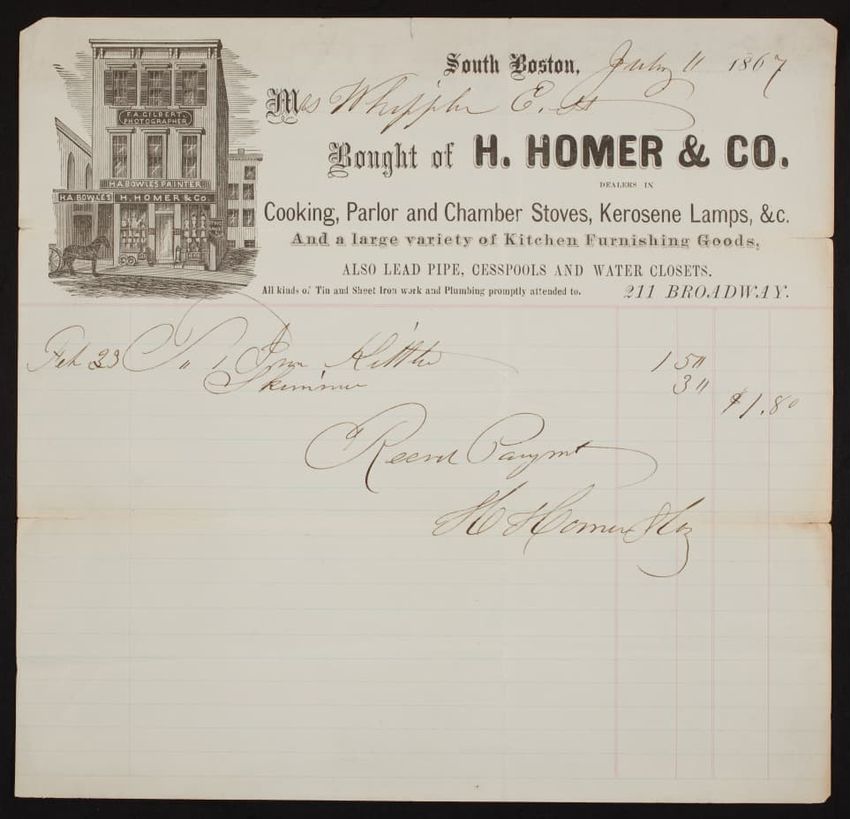 South Boston, July 11 1867
Mrs Whipple E. St
Bought of H. HOMER & CO.
DEALERS IN
Cooking, Parlor and Chamber Stoves, Kerosene Lamps, &c.
And a large variety of Kitchen Furnishing Goods,
ALSO LEAD PIPE, CESSPOOLS AND WATER CLOSETS.
All kinds of Tin and Sheet Iron work and Plumbing promptly attended to. 211 BROADWAY.
F.A. GILBERT,
PHOTOGRAPHER
H.A. BOWLES PAINTER
H.A. BOWLES H. HOMER & CO.
Feb 23 To 1 Iron Kittle 1 50
Skimmer 30
$1.80
Recvd Paymt
H Homer & Co